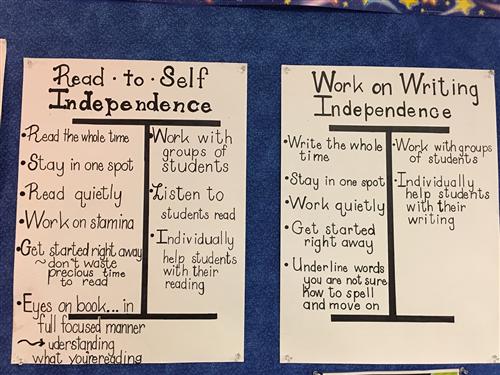 Read · to · Self
Independence
•Read the whole time
•Stay in one spot
•Read quietly
•Work on stamina
•Get started right away
~ don't waste
precious time
to read
•Eyes on book... in
full focused manner
uderstanding
what you'rereading
•Work with
groups of
students
•Listen to
students read
•Individually
help students
with their
reading
Work on Writing
Independence
•Write the whole
time
•Stay in one spot
•Work quietly
•Get started
right away
•Underline words
you are not sure
how to spell
and move on
•Work with groups
of students
•Individually
help students
with their
writing